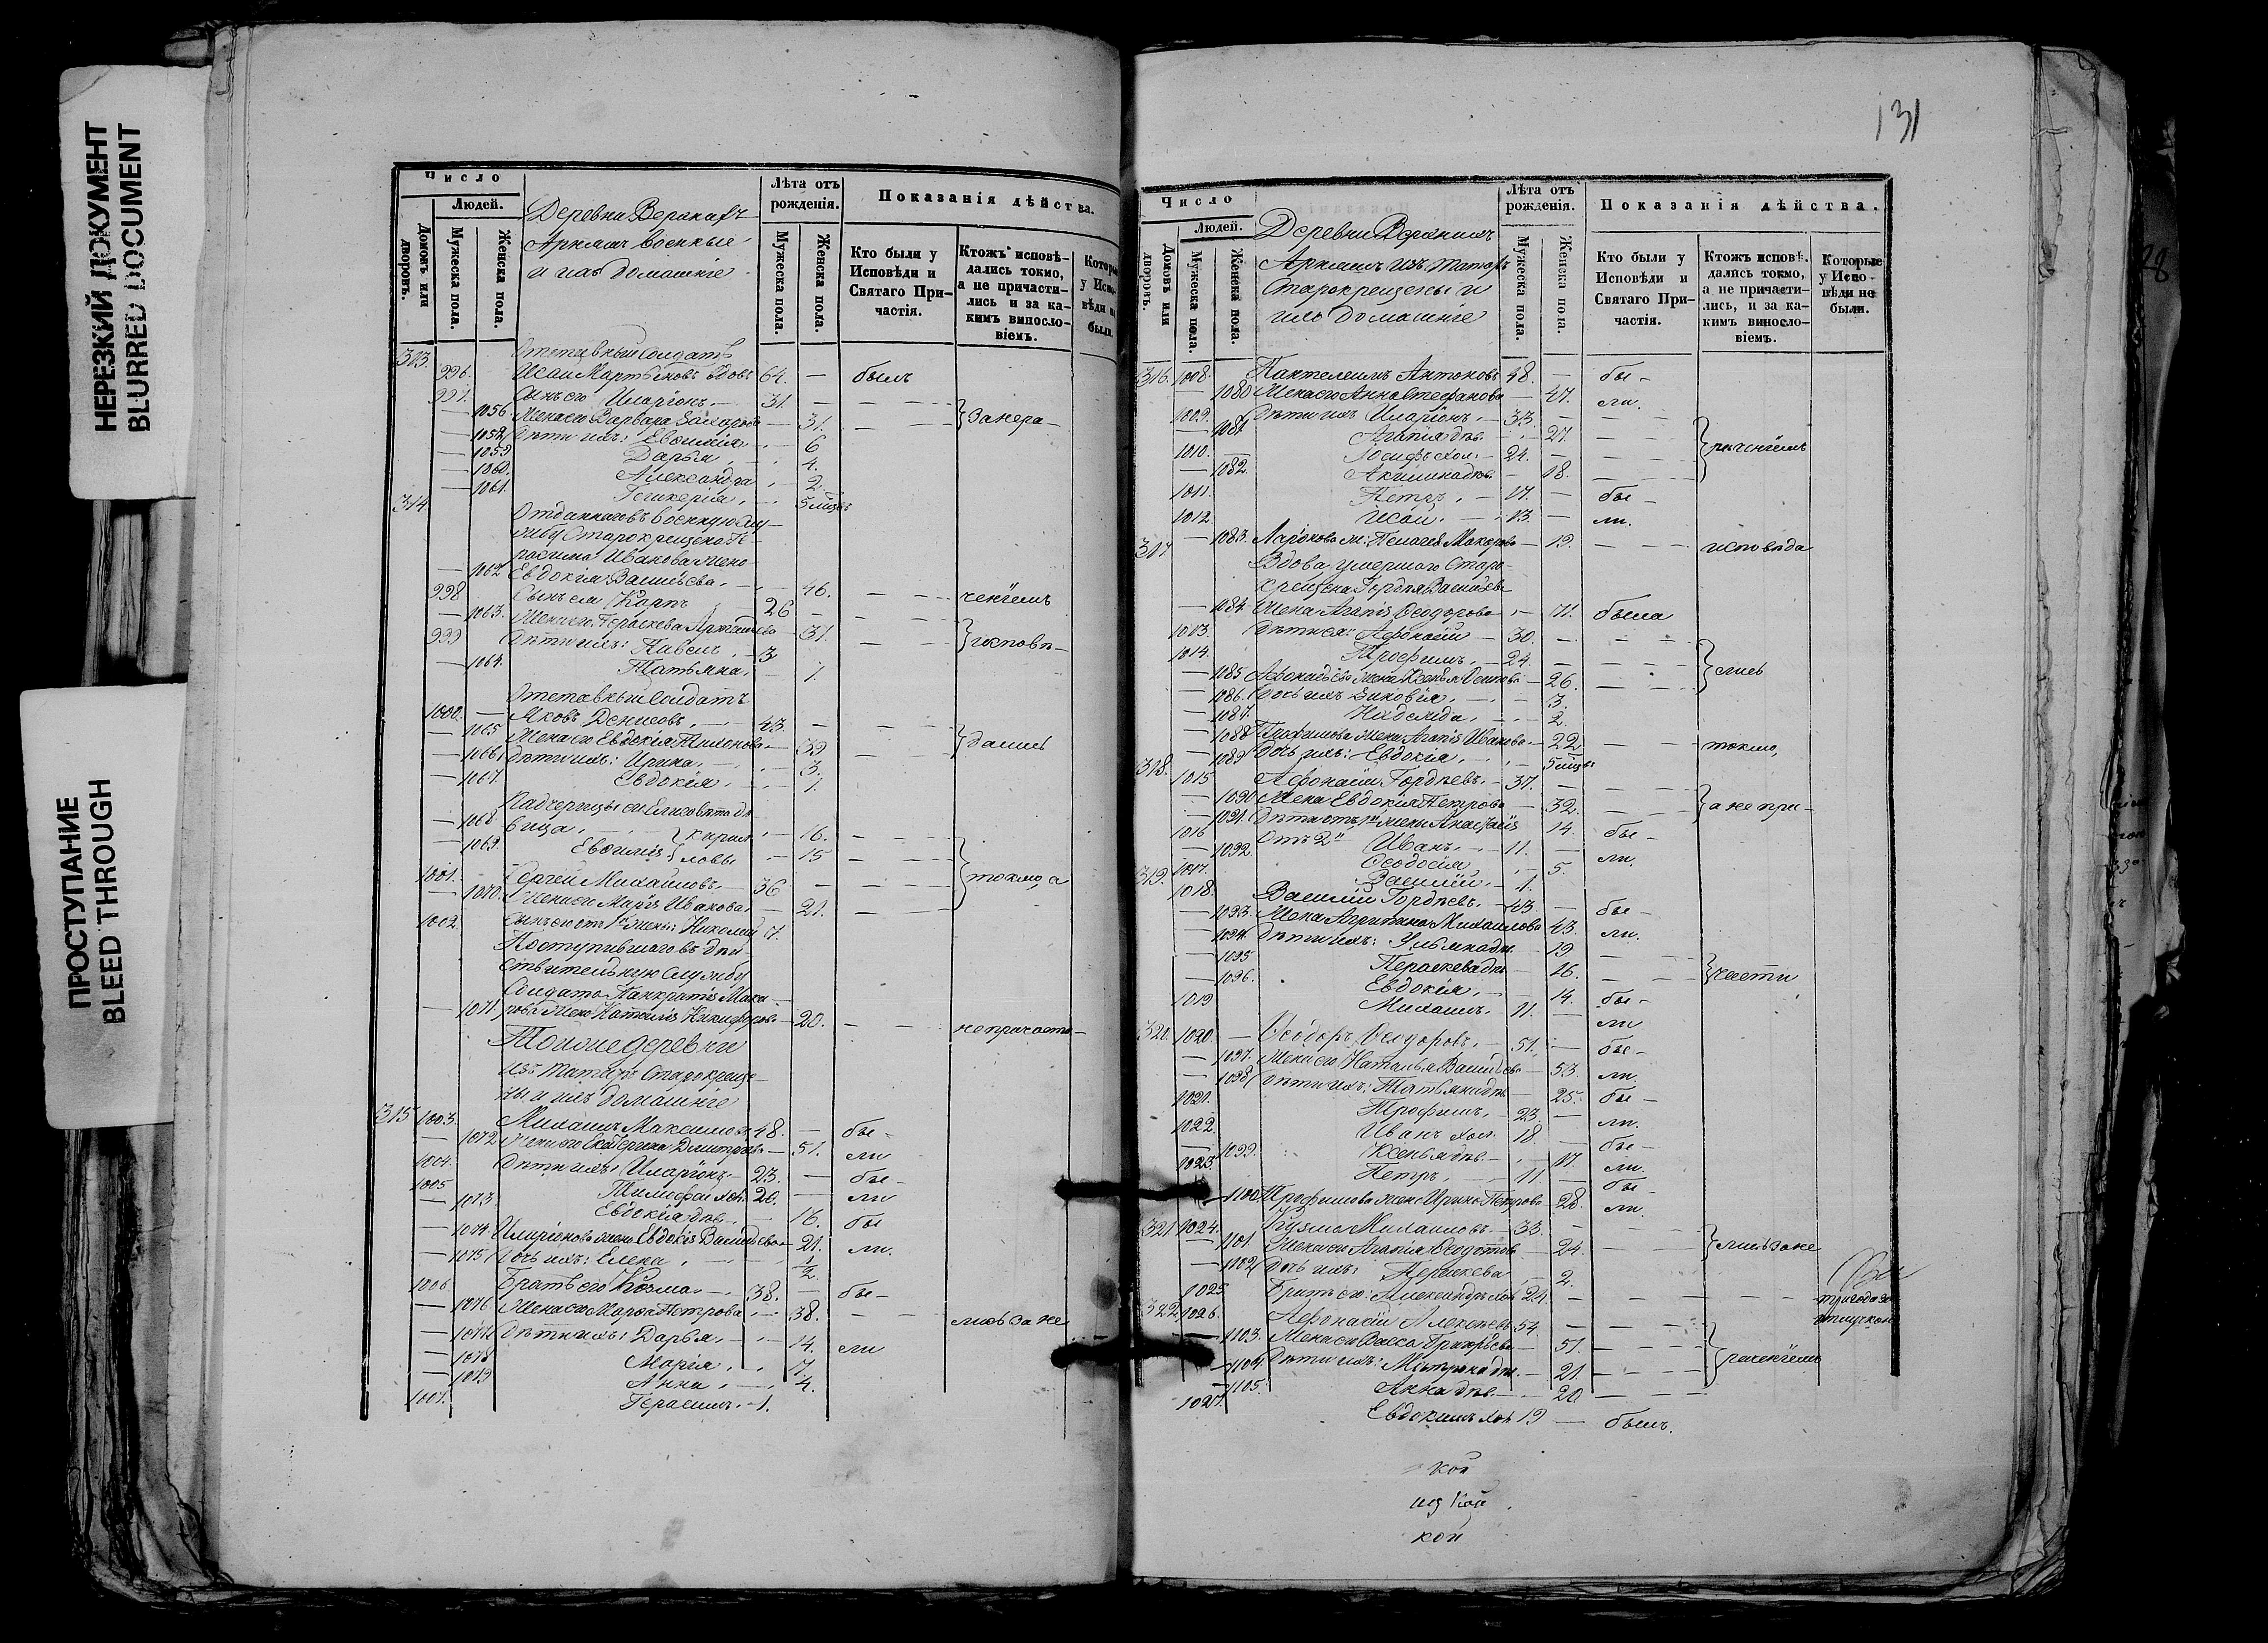 НЕРЕЗКИЙ ДОКУМЕНТ
BLURRED DOCUMENT
ПРОСТУПАНИЕ
BLEED THROUGH
Число
Людей.
Домовъ или дворовъ.
Мужеска пола.
Женска пола.
Деревни
военные
и ихъ домашніе
Лѣта отъ рожденія.
Мужеска пола.
Женска пола.
Показанія дѣйства.
Кто были у Исповѣди и Святаго Причастія.
Ктожъ исповѣдались токмо, а не причастились и за какимъ винословіемъ.
Которые у Исповѣди не были.
313. Отставный Солдатъ
996. Исаи Мартыновъ вдовъ 64. — былъ
997. Сынъ его Иларіонъ 31. —
— 1056 Жена его Варвара Захарова — 31. — } За нера-
— 1058 Дѣти ихъ: Евфимія — 6
— 1059 Дарья 4.
— 1060. Александра 2.
— 1061. Гликерія 5 мѣсец
314 Отданнаго въ военную слу-
жбу Старокрещена Ге-
расима Иванова жена
— 1062 Евдокія Васильева — 46. — ченіемъ
998 Сынъ ея Карпъ 26 —
— 1063. Жена его Параскева — 31. — } исповѣ-
999 Дѣти ихъ: Павелъ 3
— 1064. Татьяна 1.
Отставный Солдатъ
1000. — Яковъ Денисовъ 43. —
— 1065 Жена его Евдокія — 39 — } дались
— 1066 Дѣти ихъ: Ирина 3.
— 1067 Евдокія 1.
Падчерицы его Елисавета дѣ-
— 1068 вица } Кирил- 16. —
— 1069. Евфимія } ловы — 15 —
1001. Сергей Михайловъ 36 — } токмо, а
— 1070. Жена его Марія Иванова — 21. —
1002. Сынъ его отъ 1й жены Николай 7.
Поступившаго въ дѣй-
ствительную службу
Солдата Панкратія Мака-
— 1071 рова жена Наталія Никифорова — 20. — не причасти-
Той же деревни
изъ татаръ Старокреще-
ны и ихъ домашніе
315 1003. Михаилъ Максимовъ 48. — бы-
— 1072 Жена его Екатерина Димитріева — 51. ли
1004. Дѣти ихъ: Иларіонъ 23. — бы-
1005 Тимофей хол. 20. — ли
— 1073. Евдокія дѣв. 16. бы
— 1074 Иларіонова жена Евдокія Васильева — 21. ли.
— 1075 Дочь ихъ: Елена 1/2
1006. Братъ его Козма 38. — бы-
— 1076 Жена его Петрова 38. — лись за не
— 1077 Дѣти ихъ: Дарья 14. ли
— 1078 Марія 7.
— 1079 Анна 4.
1007. Герасимъ 1.
131
Число
Людей.
Домовъ или дворовъ.
Мужеска пола.
Женска пола.
Деревни
изъ татаръ
Старокрещены и
ихъ домашніе
Лѣта отъ рожденія.
Мужеска пола.
Женска пола.
Показанія дѣйства.
Кто были у Исповѣди и Святаго Причастія.
Ктожъ исповѣдались токмо, а не причастились, и за какимъ винословіемъ.
Которые у Исповѣди не были.
316. 1008. Пантелеимъ Антоновъ 48. — бы-
— 1080 Жена его Анна Стефанова — 47. ли.
1009. Дѣти ихъ Иларіонъ 33. —
— 1081 Агапія дѣв. 27. —
1010. Іосифъ хол. 24. — } раченіемъ
— 1082. Акилина дѣв. 18. —
1011. Петръ 17. — бы-
1012 Исаи 13. — ли.
— 1083. Ларіонова ж: Пелагея Макарова — 19. — исповѣда
317 Вдова, умершаго Старо-
крещена Гордѣя Васильева
— 1084. Жена Агапія Феодорова — 71. была
1013. Дѣти ея: Афонасій 30. —
1014. Трофимъ 24. — } лись
— 1085 Афонасіева жена Ксенія — 26. —
— 1086. Дочь ихъ Зиновія 3.
— 1087. Надежда 2.
— 1088 Трофимова жена Агапія Иванова — 22 — токмо,
— 1089 Дочь ихъ: Евдокія 5 мѣсец
318. 1015 Афонасій Гордѣевъ 37. —
— 1090 Жена Евдокія Петрова — 32. — } а не при-
— 1091. Дѣти отъ 1й жены Анастасія 14. бы-
1016 Отъ 2й Иванъ 11. — ли.
— 1092. Феодосія 5.
1017. Василій 1.
319. 1018. Василій Гордѣевъ 43. — бы-
— 1093. Жена Агрипина Михаилова 43. ли.
— 1094. Дѣти ихъ: Ульяна дѣв. 19 —
— 1095 Параскева дѣв. 16. — } части
— 1096. Евдокія 14. бы-
1019 Михаилъ 11. — ли
320. 1020. — Феодоръ Феодоровъ 51. — бы-
— 1097. Жена его Наталья Васильева — 53. ли.
— 1098 Дѣти ихъ: Татьяна дѣв. 25. бы-
1021. Трофимъ 23. — ли.
1022. Иванъ хол. 18 — бы-
— 1099. Ксенья дѣв. 17. ли.
1023. Петръ 11. — бы-
— 1100 Трофимова жена Ирина Петрова 28. ли.
321 1024. Кузма Михаиловъ 33. —
— 1101. Жена его Агапія Феодотова — 24. — } лись за не
— 1102 Дочь ихъ: Параскева 2.
1025 Братъ его: Александръ хол. 24. — три года въ отлучкѣ
322 1026. Афонасій Алексѣевъ 54. —
— 1103. Жена его Васса Григорьева — 51. —
— 1104 Дѣти ихъ: Матрона дѣв. — 21. — } раченіемъ
— 1105. Анна дѣв. — 20 —
1027. Евдокимъ хол. 19 — былъ.
кой
кой